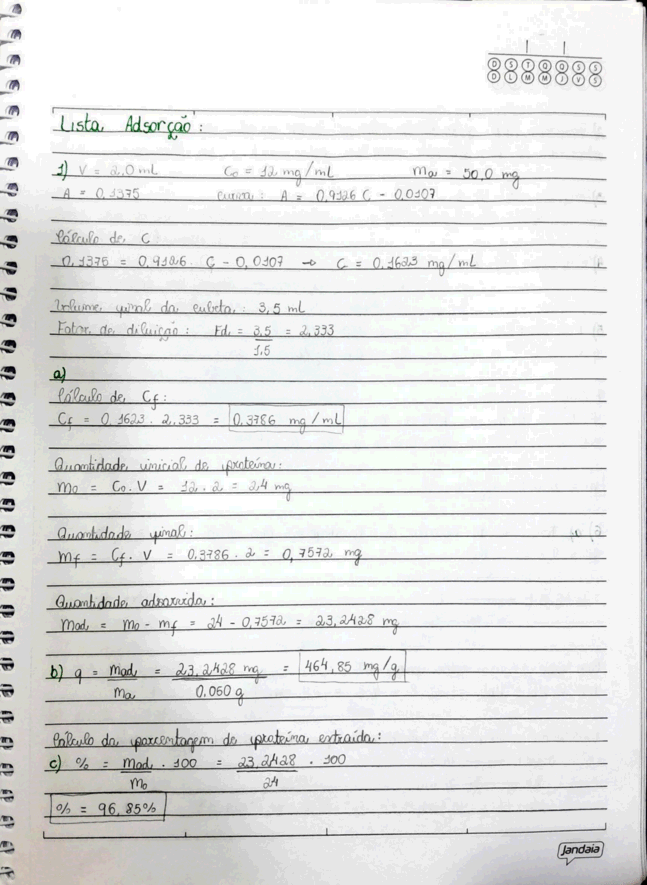 D S T Q Q S S
D L M M J V S
Lista Adsorção:
1) V = 2,0 mL C₀ = 12 mg/mL ma = 50,0 mg
A = 0,1375 curva: A = 0,9126 C - 0,0107
Cálculo de C
0,1375 = 0,9126 . C - 0,0107 → C = 0,1623 mg/mL
Volume final da cubeta: 3,5 mL
Fator de diluição: Fd = 3,5 = 2,333
1,5
a)
Cálculo de Cf:
Cf = 0,1623 . 2,333 = 0,3786 mg/mL
Quantidade inicial de proteína:
m₀ = C₀.V = 12 . 2 = 24 mg
Quantidade final:
mf = Cf . V = 0,3786 . 2 = 0,7572 mg
Quantidade adsorvida:
mad = m₀ - mf = 24 - 0,7572 = 23,2428 mg
b) q = mad = 23,2428 mg = 464,85 mg/g
ma 0,050 g
Cálculo da porcentagem de proteína extraída:
c) % = mad . 100 = 23,2428 . 100
m₀ 24
% = 96,85%
Jandaia